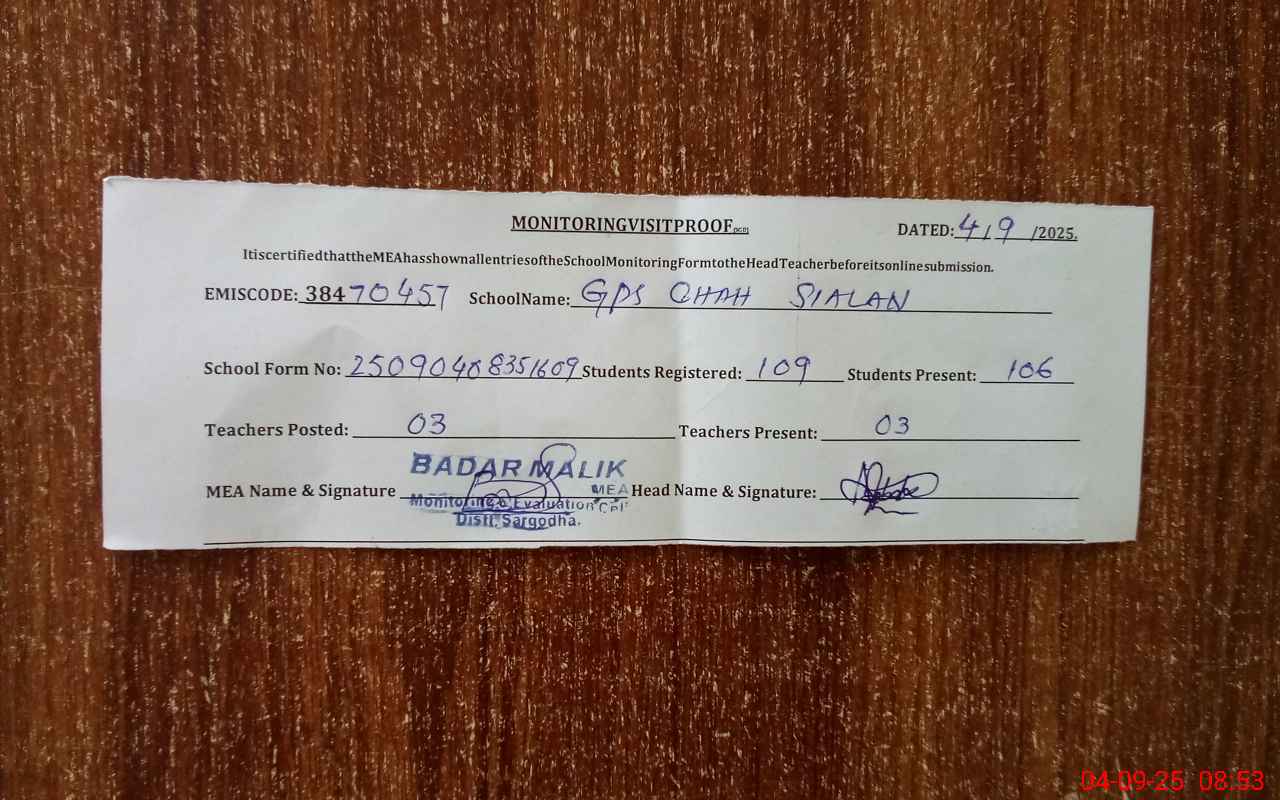 MONITORINGVISITPROOF
DATED: 4/9 /2025.
ItiscertifiedthattheMEAhasshownallentriesoftheSchoolMonitoringFormtotheHeadTeacherbeforeitsonlinesubmission.
EMISCODE: 38470457 SchoolName: GPS CHAH SIALAN
School Form No: 25090408351609 Students Registered: 109 Students Present: 106
Teachers Posted: 03 Teachers Present: 03
BADAR MALIK
MEA
MEA Name & Signature Head Name & Signature:
Monitoring & Evaluation Cell
Distt. Sargodha.
04-09-25 08:53